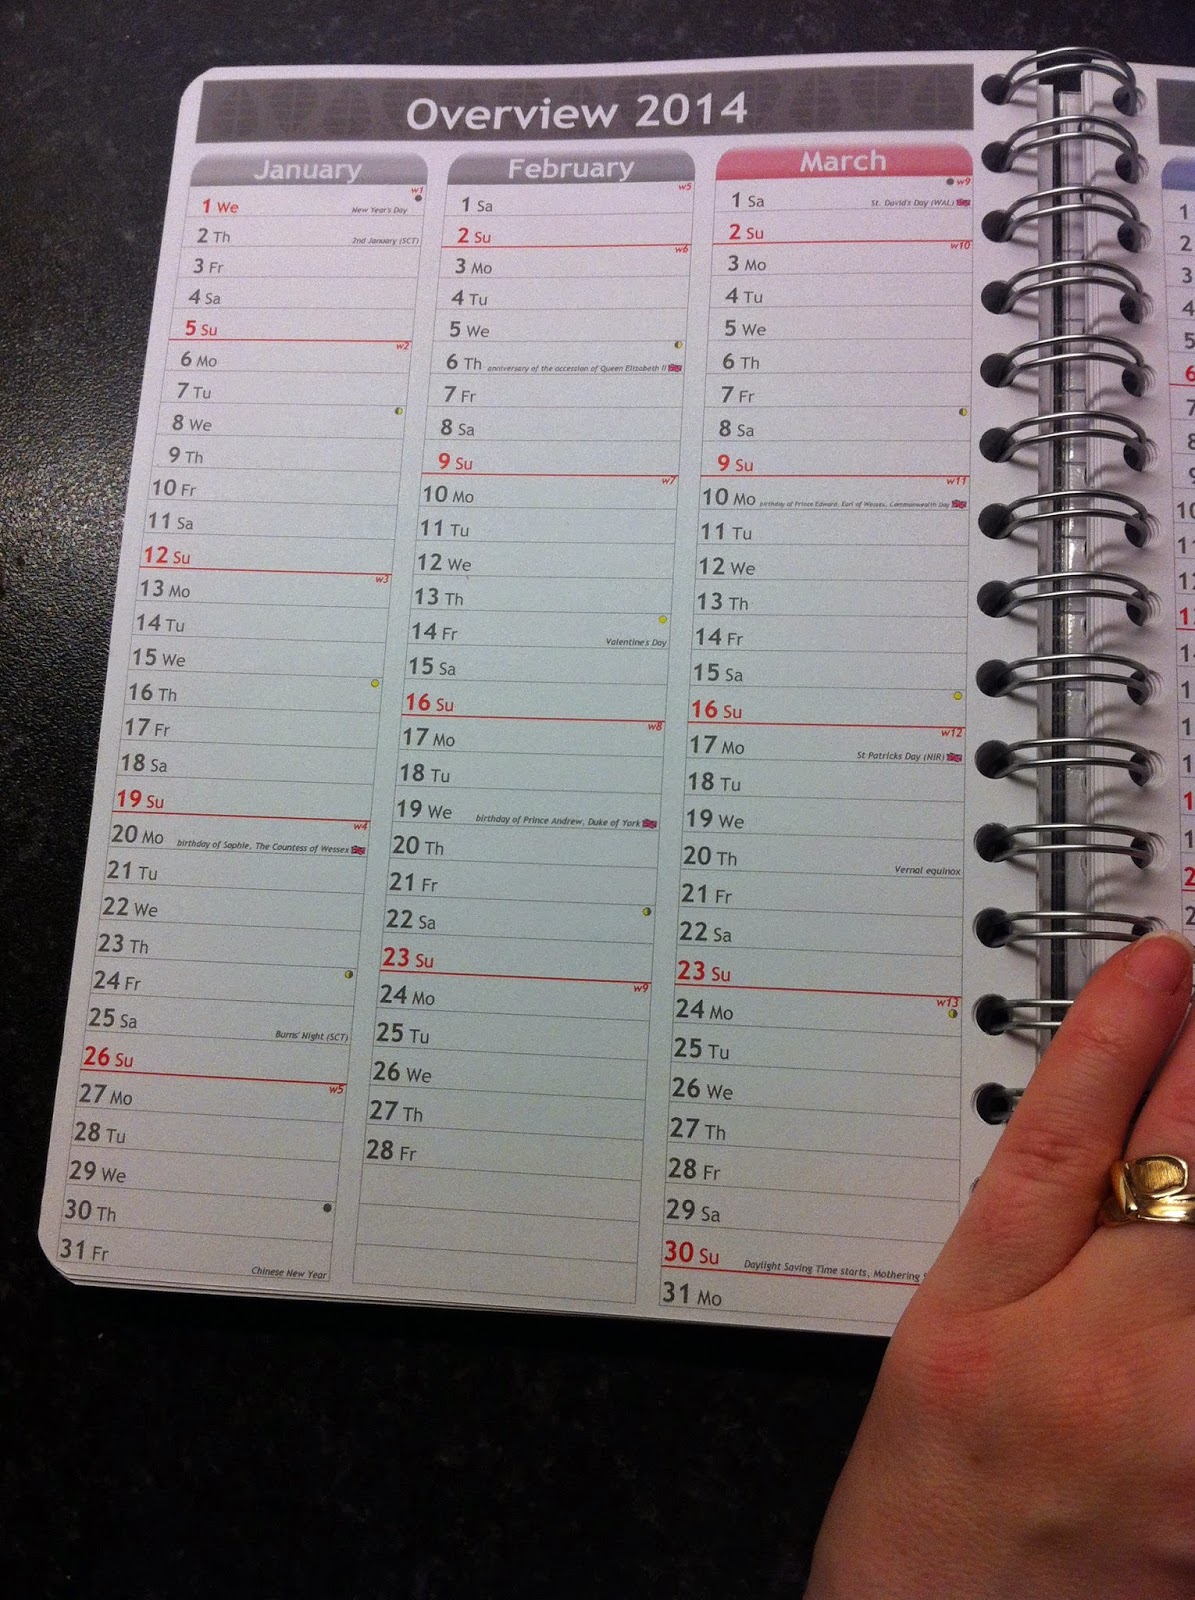 Overview 2014
January
w1
1 We New Year's Day
2 Th 2nd January (SCT)
3 Fr
4 Sa
5 Su
w2
6 Mo
7 Tu
8 We
9 Th
10 Fr
11 Sa
12 Su
w3
13 Mo
14 Tu
15 We
16 Th
17 Fr
18 Sa
19 Su
w4
20 Mo birthday of Sophie, The Countess of Wessex
21 Tu
22 We
23 Th
24 Fr
25 Sa Burns' Night (SCT)
26 Su
w5
27 Mo
28 Tu
29 We
30 Th
31 Fr Chinese New Year
February
w5
1 Sa
2 Su
w6
3 Mo
4 Tu
5 We
6 Th anniversary of the accession of Queen Elizabeth II
7 Fr
8 Sa
9 Su
w7
10 Mo
11 Tu
12 We
13 Th
14 Fr Valentine's Day
15 Sa
16 Su
w8
17 Mo
18 Tu
19 We birthday of Prince Andrew, Duke of York
20 Th
21 Fr
22 Sa
23 Su
w9
24 Mo
25 Tu
26 We
27 Th
28 Fr
March
w9
1 Sa St. David's Day (WAL)
2 Su
w10
3 Mo
4 Tu
5 We
6 Th
7 Fr
8 Sa
9 Su
w11
10 Mo birthday of Prince Edward, Earl of Wessex, Commonwealth Day
11 Tu
12 We
13 Th
14 Fr
15 Sa
16 Su
w12
17 Mo St Patricks Day (NIR)
18 Tu
19 We
20 Th Vernal equinox
21 Fr
22 Sa
23 Su
w13
24 Mo
25 Tu
26 We
27 Th
28 Fr
29 Sa
30 Su Daylight Saving Time starts, Mothering
31 Mo
1
2
3
4
5
6
7
8
9
10